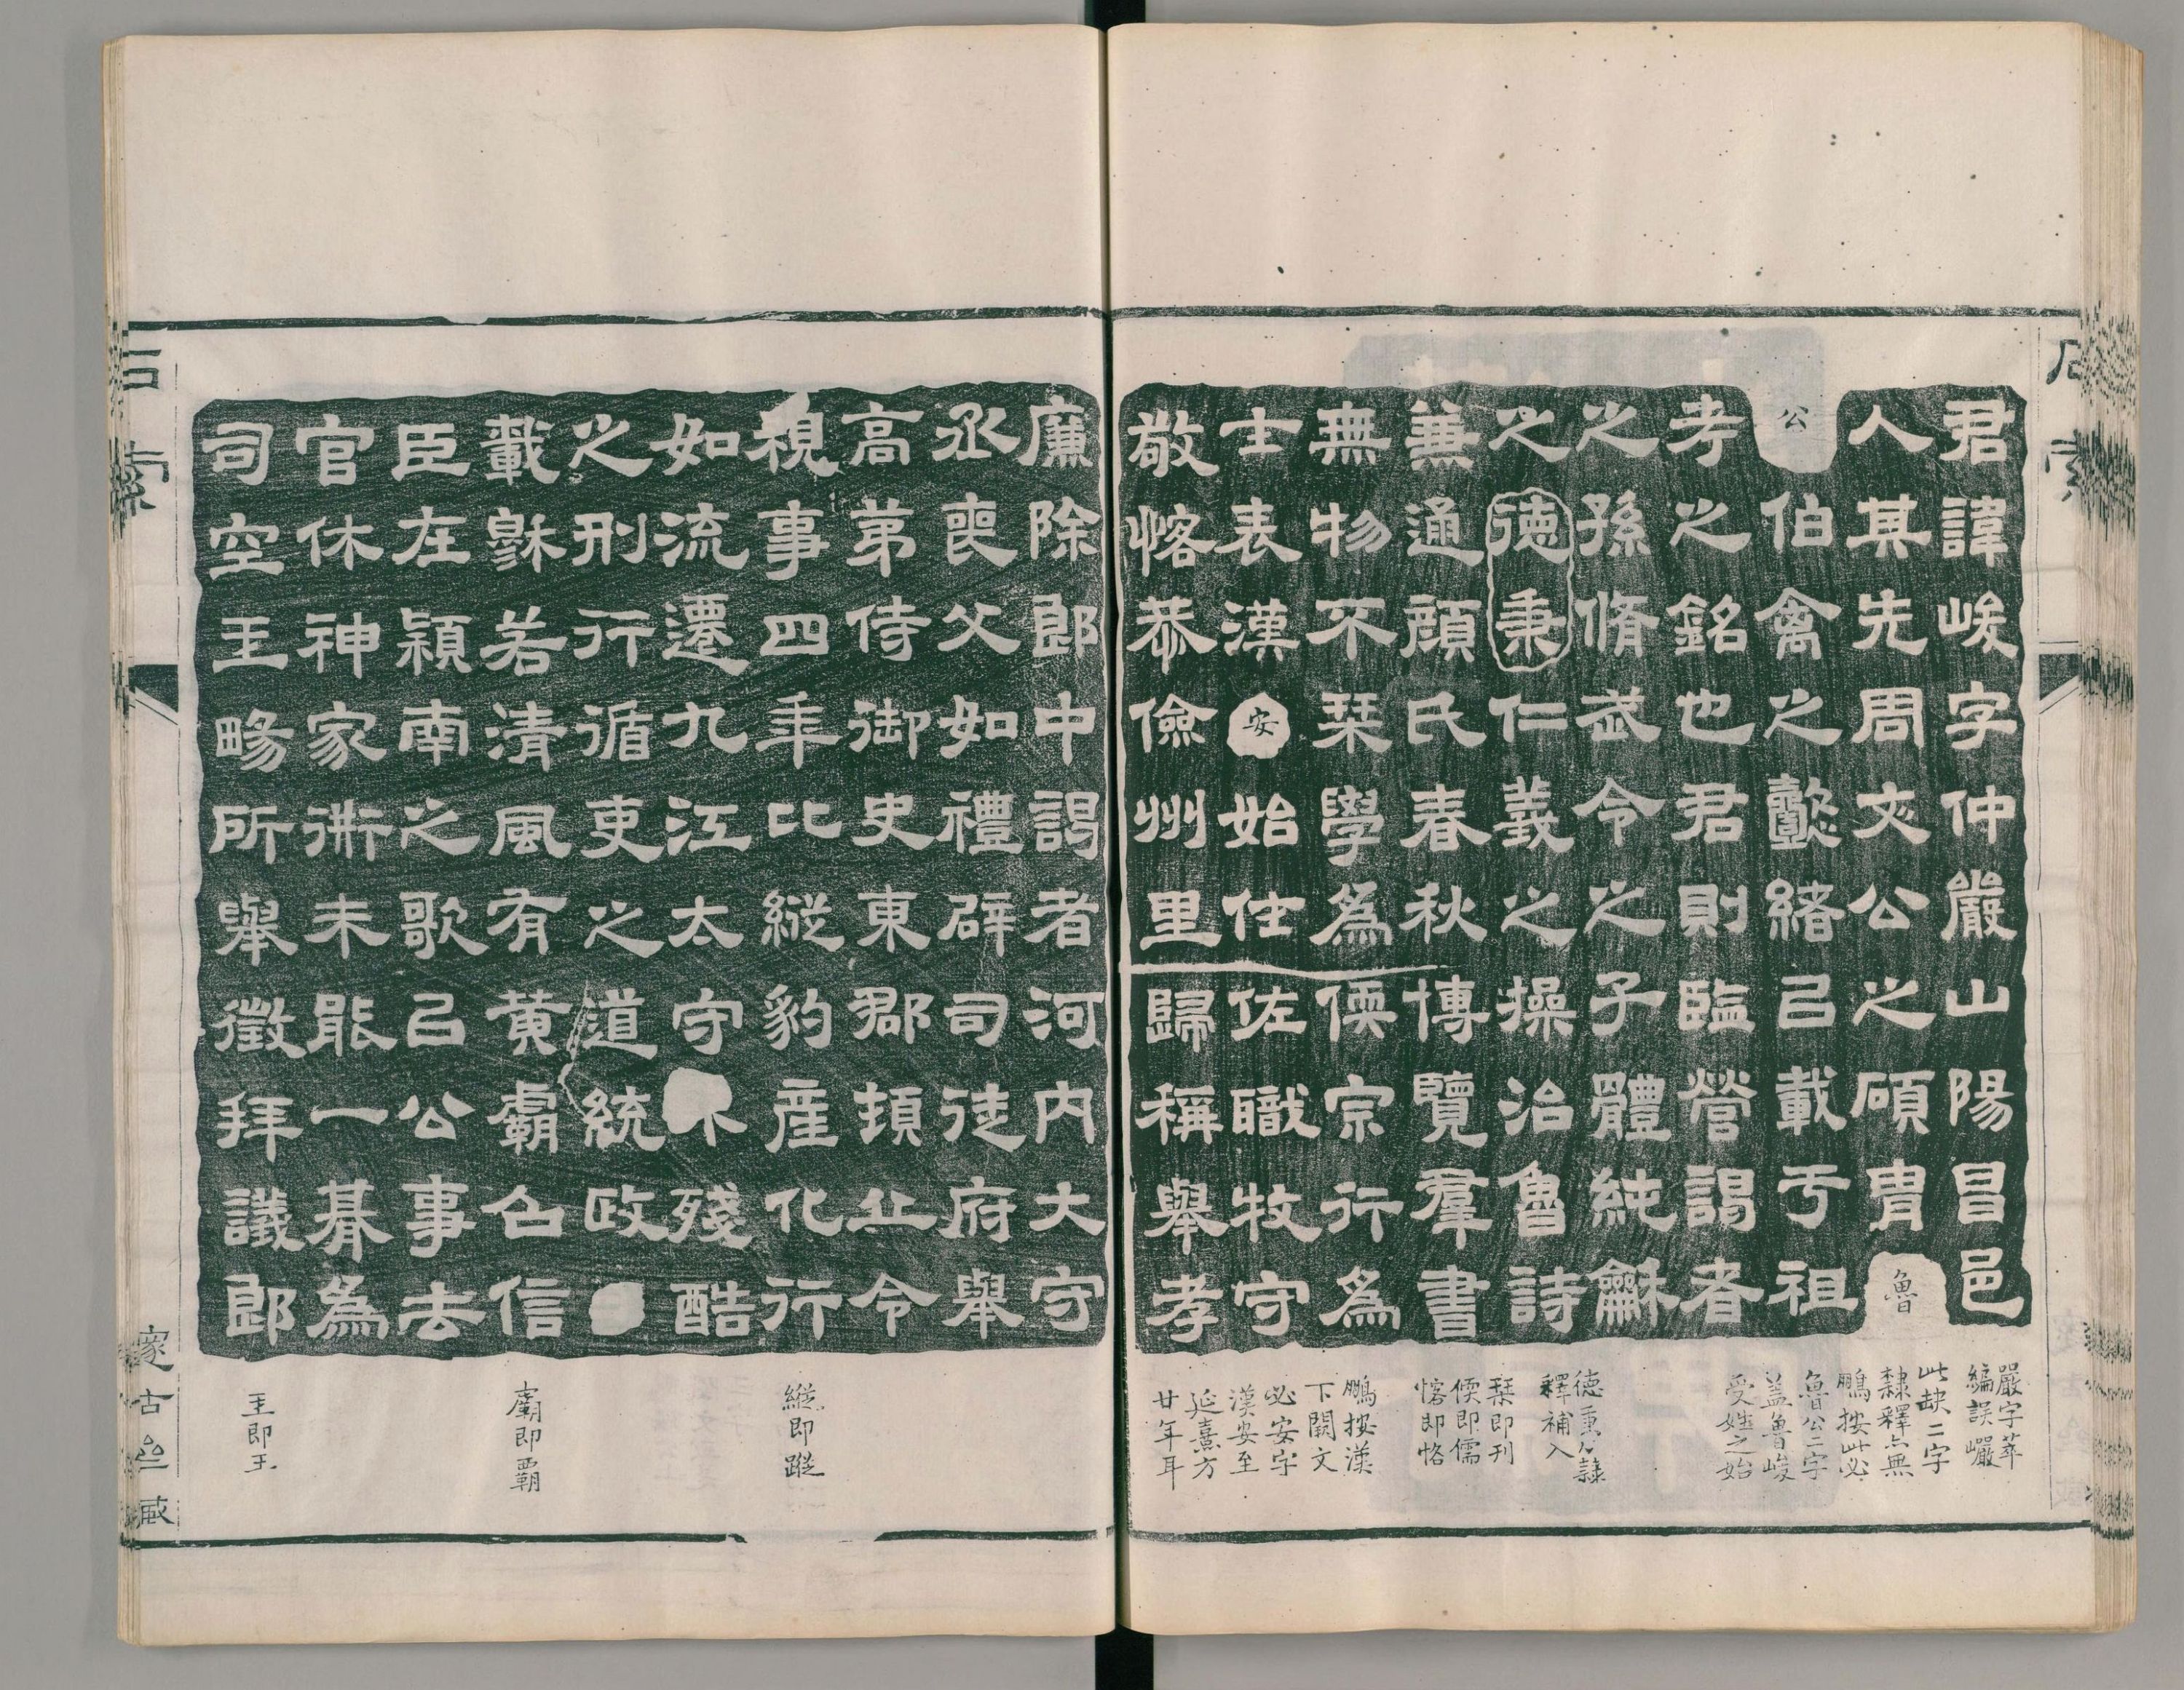 君諱峻字仲嚴山陽昌邑
人其先周文公之碩胄魯
公伯禽之懿緒㠯載亏祖
孝之銘也君則臨營謁者
之孫脩武令之子體純龢
之德秉仁義之操治魯詩
兼通顔氏春秋博覽羣書
無物不栞學為偄宗行為
士表漢安始仕佐職牧守
敬愘恭儉州里歸稱舉孝
嚴字萃
編誤巗
此缺二字
隸釋亦無
鵬按此必
魯公二字
葢魯峻
受姓之始
德秉从隸
釋補入
栞即刊
偄即儒
愘即恪
鵬按漢
下闕文
必安字
漢安至
延熹方
廿年耳
廉除郎中謁者河内大守
丞喪父如禮辟司徒府舉
高第侍御史東郡頓丘令
視事四年比縱豹産化行
如流遷九江太守殘酷
之刑行循吏之道統政
載穌若清風有黄霸召信
臣在潁南之歌㠯公事去
官休神家衖未能一朞為
司空王暢所舉徵拜議郎
縱即蹤
霸即覇
王即王
石索